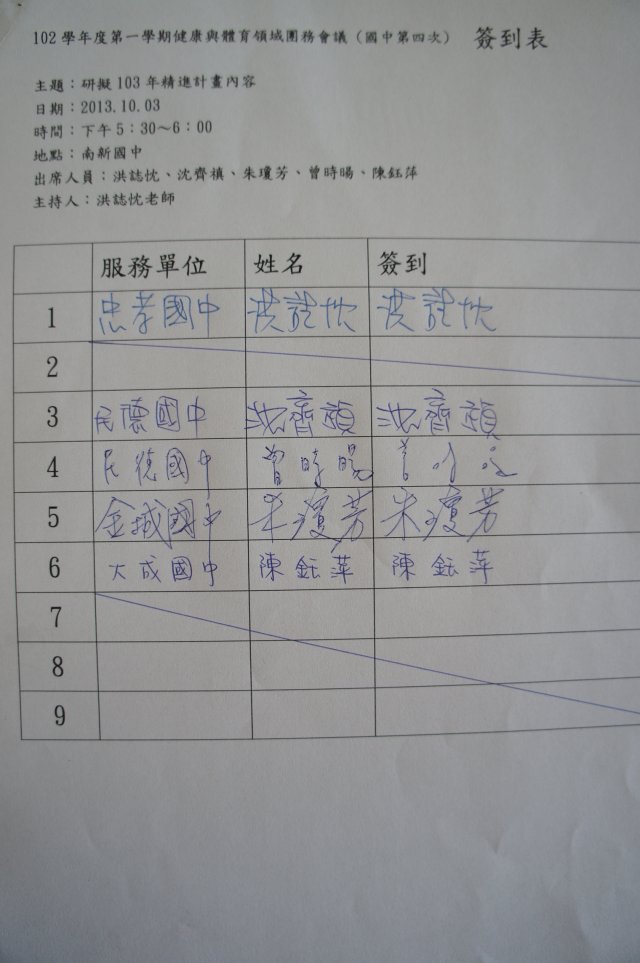 102 學年度第一學期健康與體育領域團務會議（國中第四次） 簽到表
主題：研擬 103 年精進計畫內容
日期：2013.10.03
時間：下午 5：30～6：00
地點：南新國中
出席人員：洪誌忱、沈齊禛、朱瓊芳、曾時暘、陳鈺萍
主持人：洪誌忱老師
服務單位 姓名 簽到
1 忠孝國中 洪誌忱 洪誌忱
2
3 民德國中 沈齊禛 沈齊禛
4 民德國中 曾時暘
5 金城國中 朱瓊芳 朱瓊芳
6 大成國中 陳鈺萍 陳鈺萍
7
8
9